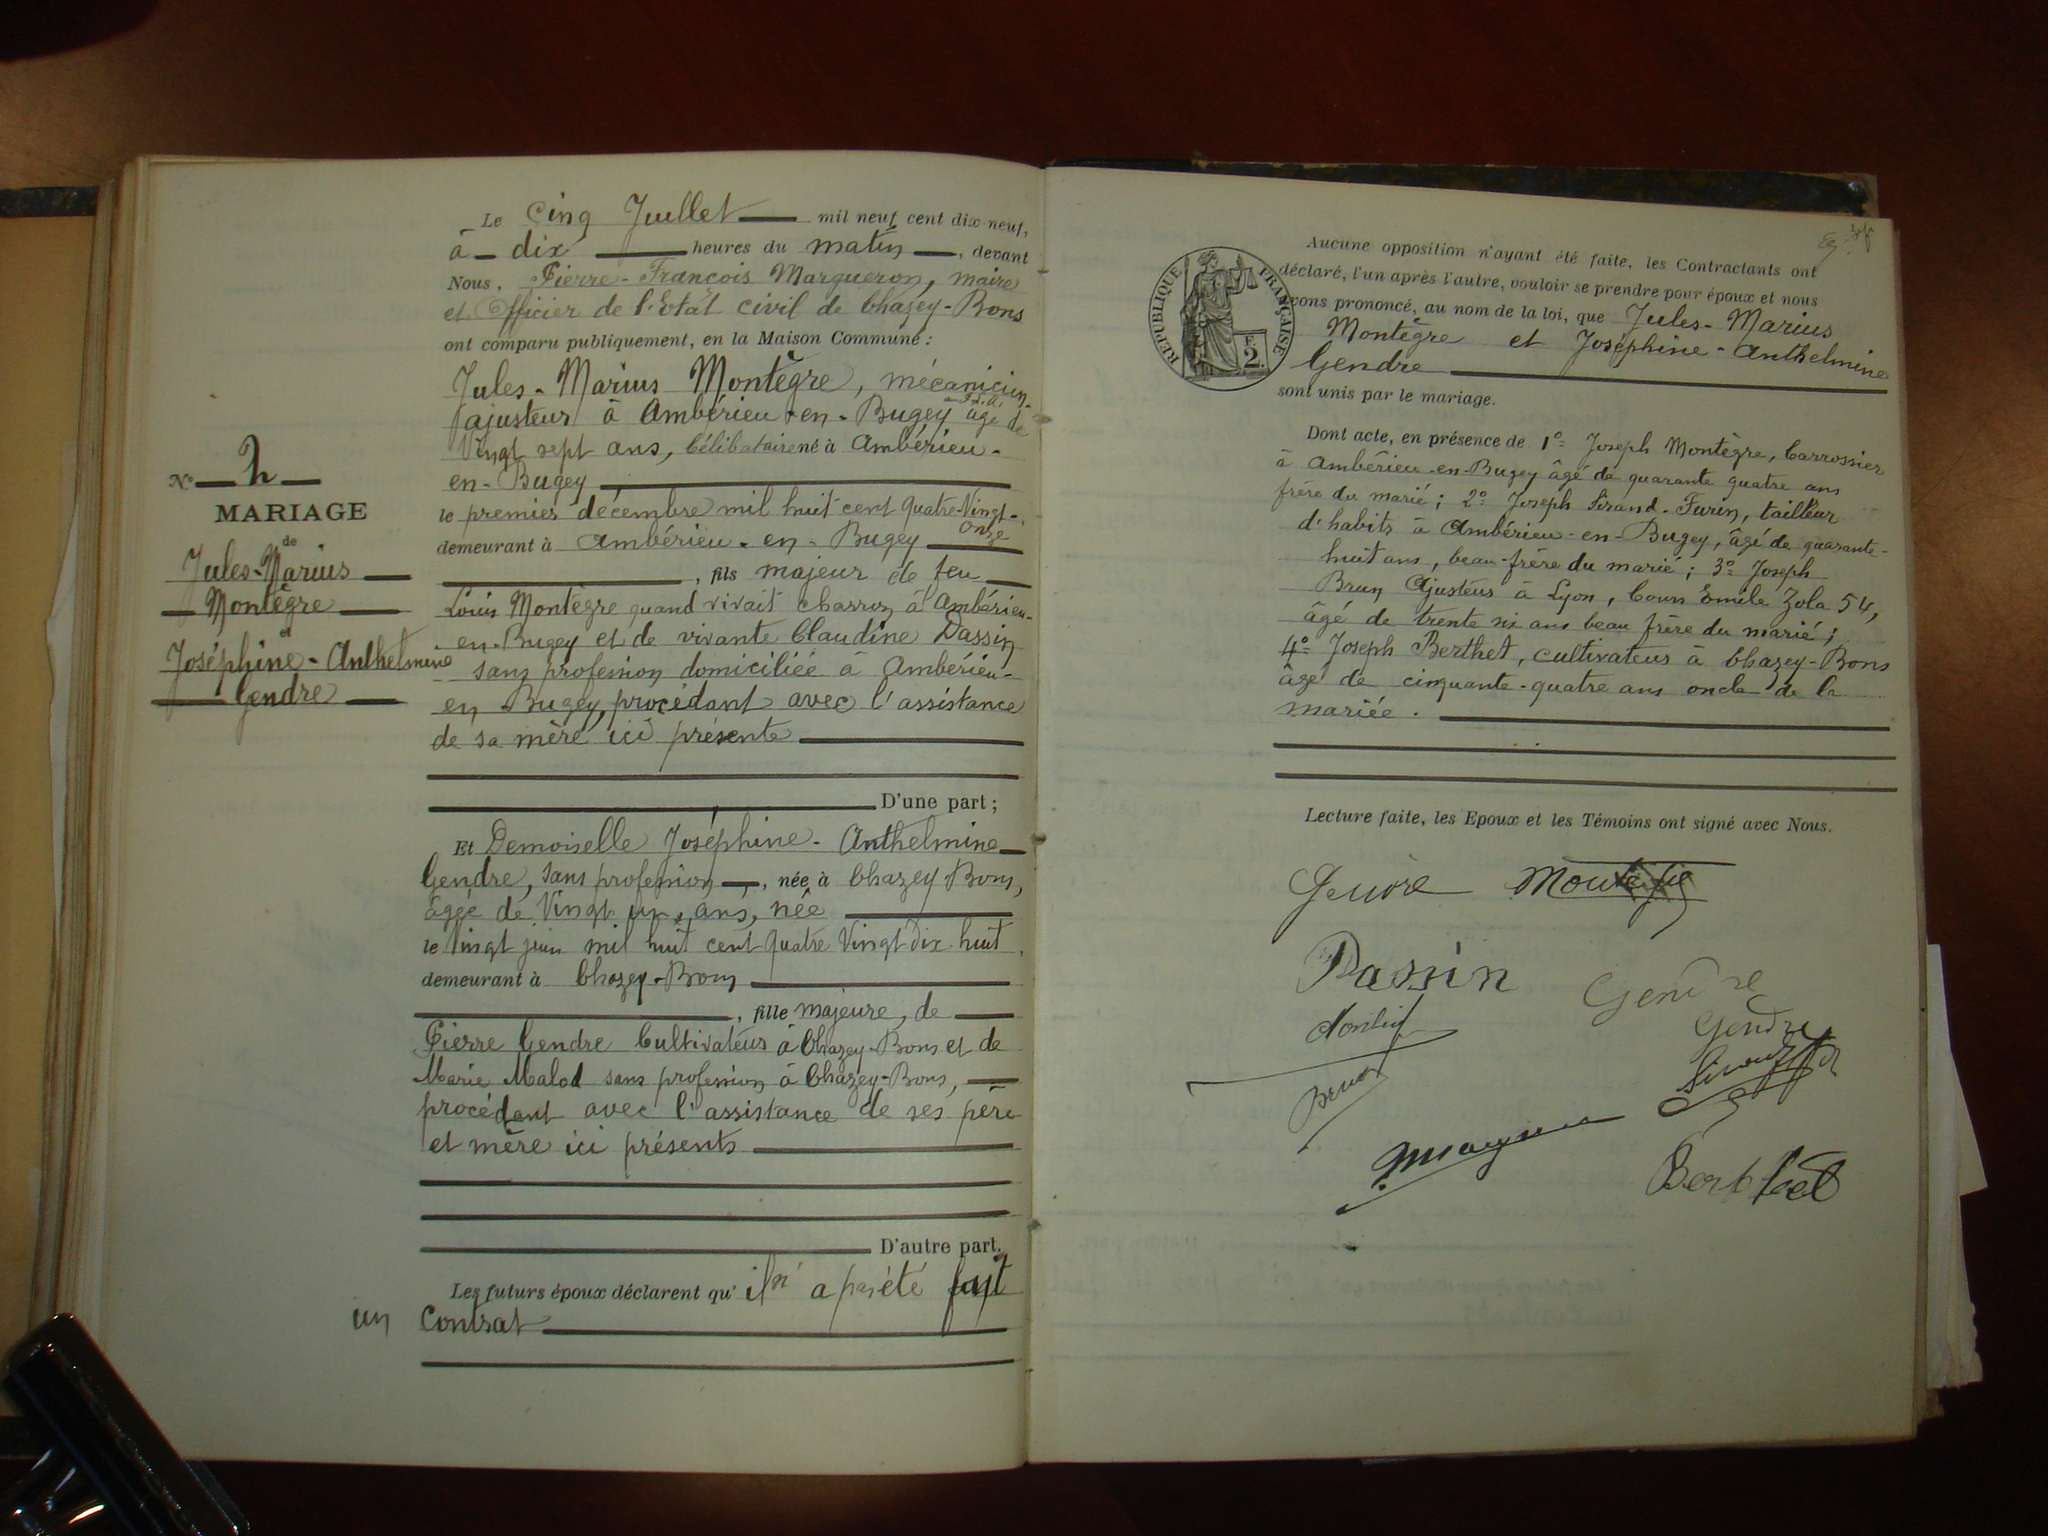 Le Cinq Juillet mil neuf cent dix-neuf,
à dix heures du matin, devant
Nous, Pierre-François Margueron, maire
et Officier de l'Etat civil de Chazey-Bons
ont comparu publiquement, en la Maison Commune :
Jules-Marius Montègre, mécanicien-
ajusteur à Ambérieu-en-Bugey âgé de
Vingt sept ans, Célibataire né à Ambérieu-
en-Bugey
le premier décembre mil huit cent Quatre-Vingt-
Onze
demeurant à Ambérieu-en-Bugey
, fils majeur de feu
Louis Montègre quand vivait charron à Ambérieu-
en-Bugey et de vivante Claudine Dassin
sans profession domiciliée à Ambérieu-
en Bugey, procédant avec l'assistance
de sa mère ici présente
D'une part ;
Et Demoiselle Joséphine-Anthelmine
Gendre, sans profession, née à Chazey-Bons,
âgée de Vingt un ans, née
le Vingt juin mil huit cent quatre Vingt Dix huit
demeurant à Chazey-Bons
, fille majeure, de
Pierre Gendre Cultivateur à Chazey-Bons et de
Marie Malod sans profession à Chazey-Bons,
procédant avec l'assistance de ses père
et mère ici présents
D'autre part.
Les futurs époux déclarent qu' il n'a pas été fait
un Contrat
N° 2
MARIAGE
de
Jules-Marius
Montègre
et
Joséphine-Anthelmine
Gendre
REPUBLIQUE FRANÇAISE
F.
2.
Aucune opposition n'ayant été faite, les Contractants ont
déclaré, l'un après l'autre, vouloir se prendre pour époux et nous
avons prononcé, au nom de la loi, que Jules-Marius
Montègre et Joséphine-Anthelmine
Gendre
sont unis par le mariage.
Dont acte, en présence de 1° Joseph Montègre, Carrossier
à Ambérieu-en-Bugey âgé de quarante quatre ans
frère du marié ; 2° Joseph Sirand-Furin, tailleur
d'habits à Ambérieu-en-Bugey, âgé de quarante-
huit ans, beau-frère du marié ; 3° Joseph
Brun Ajusteur à Lyon, Cours Emile Zola 54,
âgé de trente six ans beau frère du marié ;
4° Joseph Berthet, cultivateur à Chazey-Bons
âgé de cinquante-quatre ans oncle de la
mariée.
Lecture faite, les Epoux et les Témoins ont signé avec Nous.
Gendre
Dassin Gendre
Gendre
Brun
Berthet